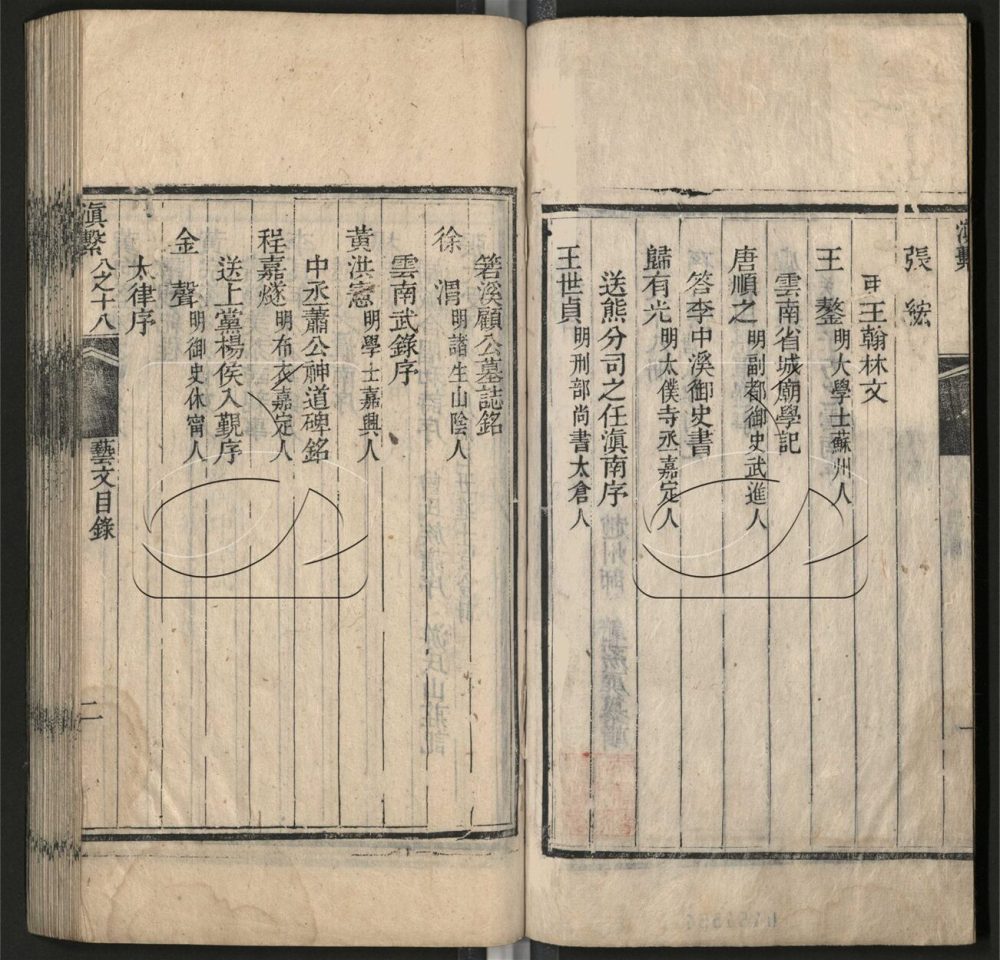 張紞
弔王翰林文
王鏊 明大學士蘇州人
雲南省城廟學記
唐順之 明副都御史武進人
答李中溪御史書
歸有光 明太僕寺丞嘉定人
送熊分司之任滇南序
王世貞 明刑部尚書太倉人
箬溪顧公墓誌銘
徐渭 明諸生山陰人
雲南武錄序
黃洪憲 明學士嘉興人
中丞蕭公神道碑銘
程嘉燧 明布衣嘉定人
送上黨楊侯入覲序
金聲 明御史休甯人
太律序
滇繫 八之十八 藝文目錄 二